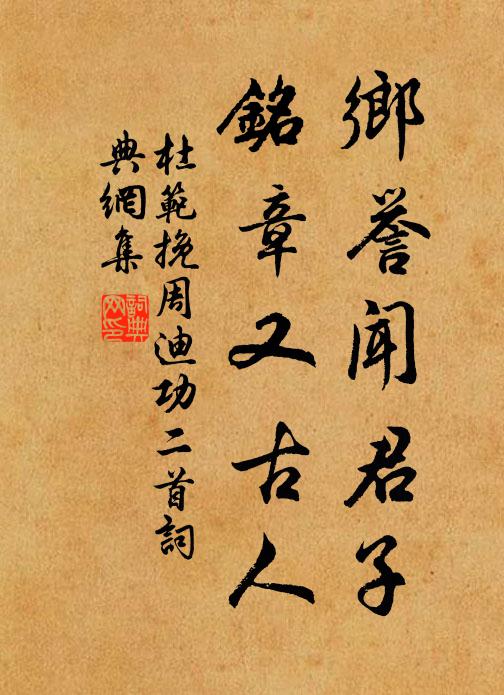 鄉譽聞君子
銘章又古人
杜範挽周迪功二首詞
典網集
詞典网印